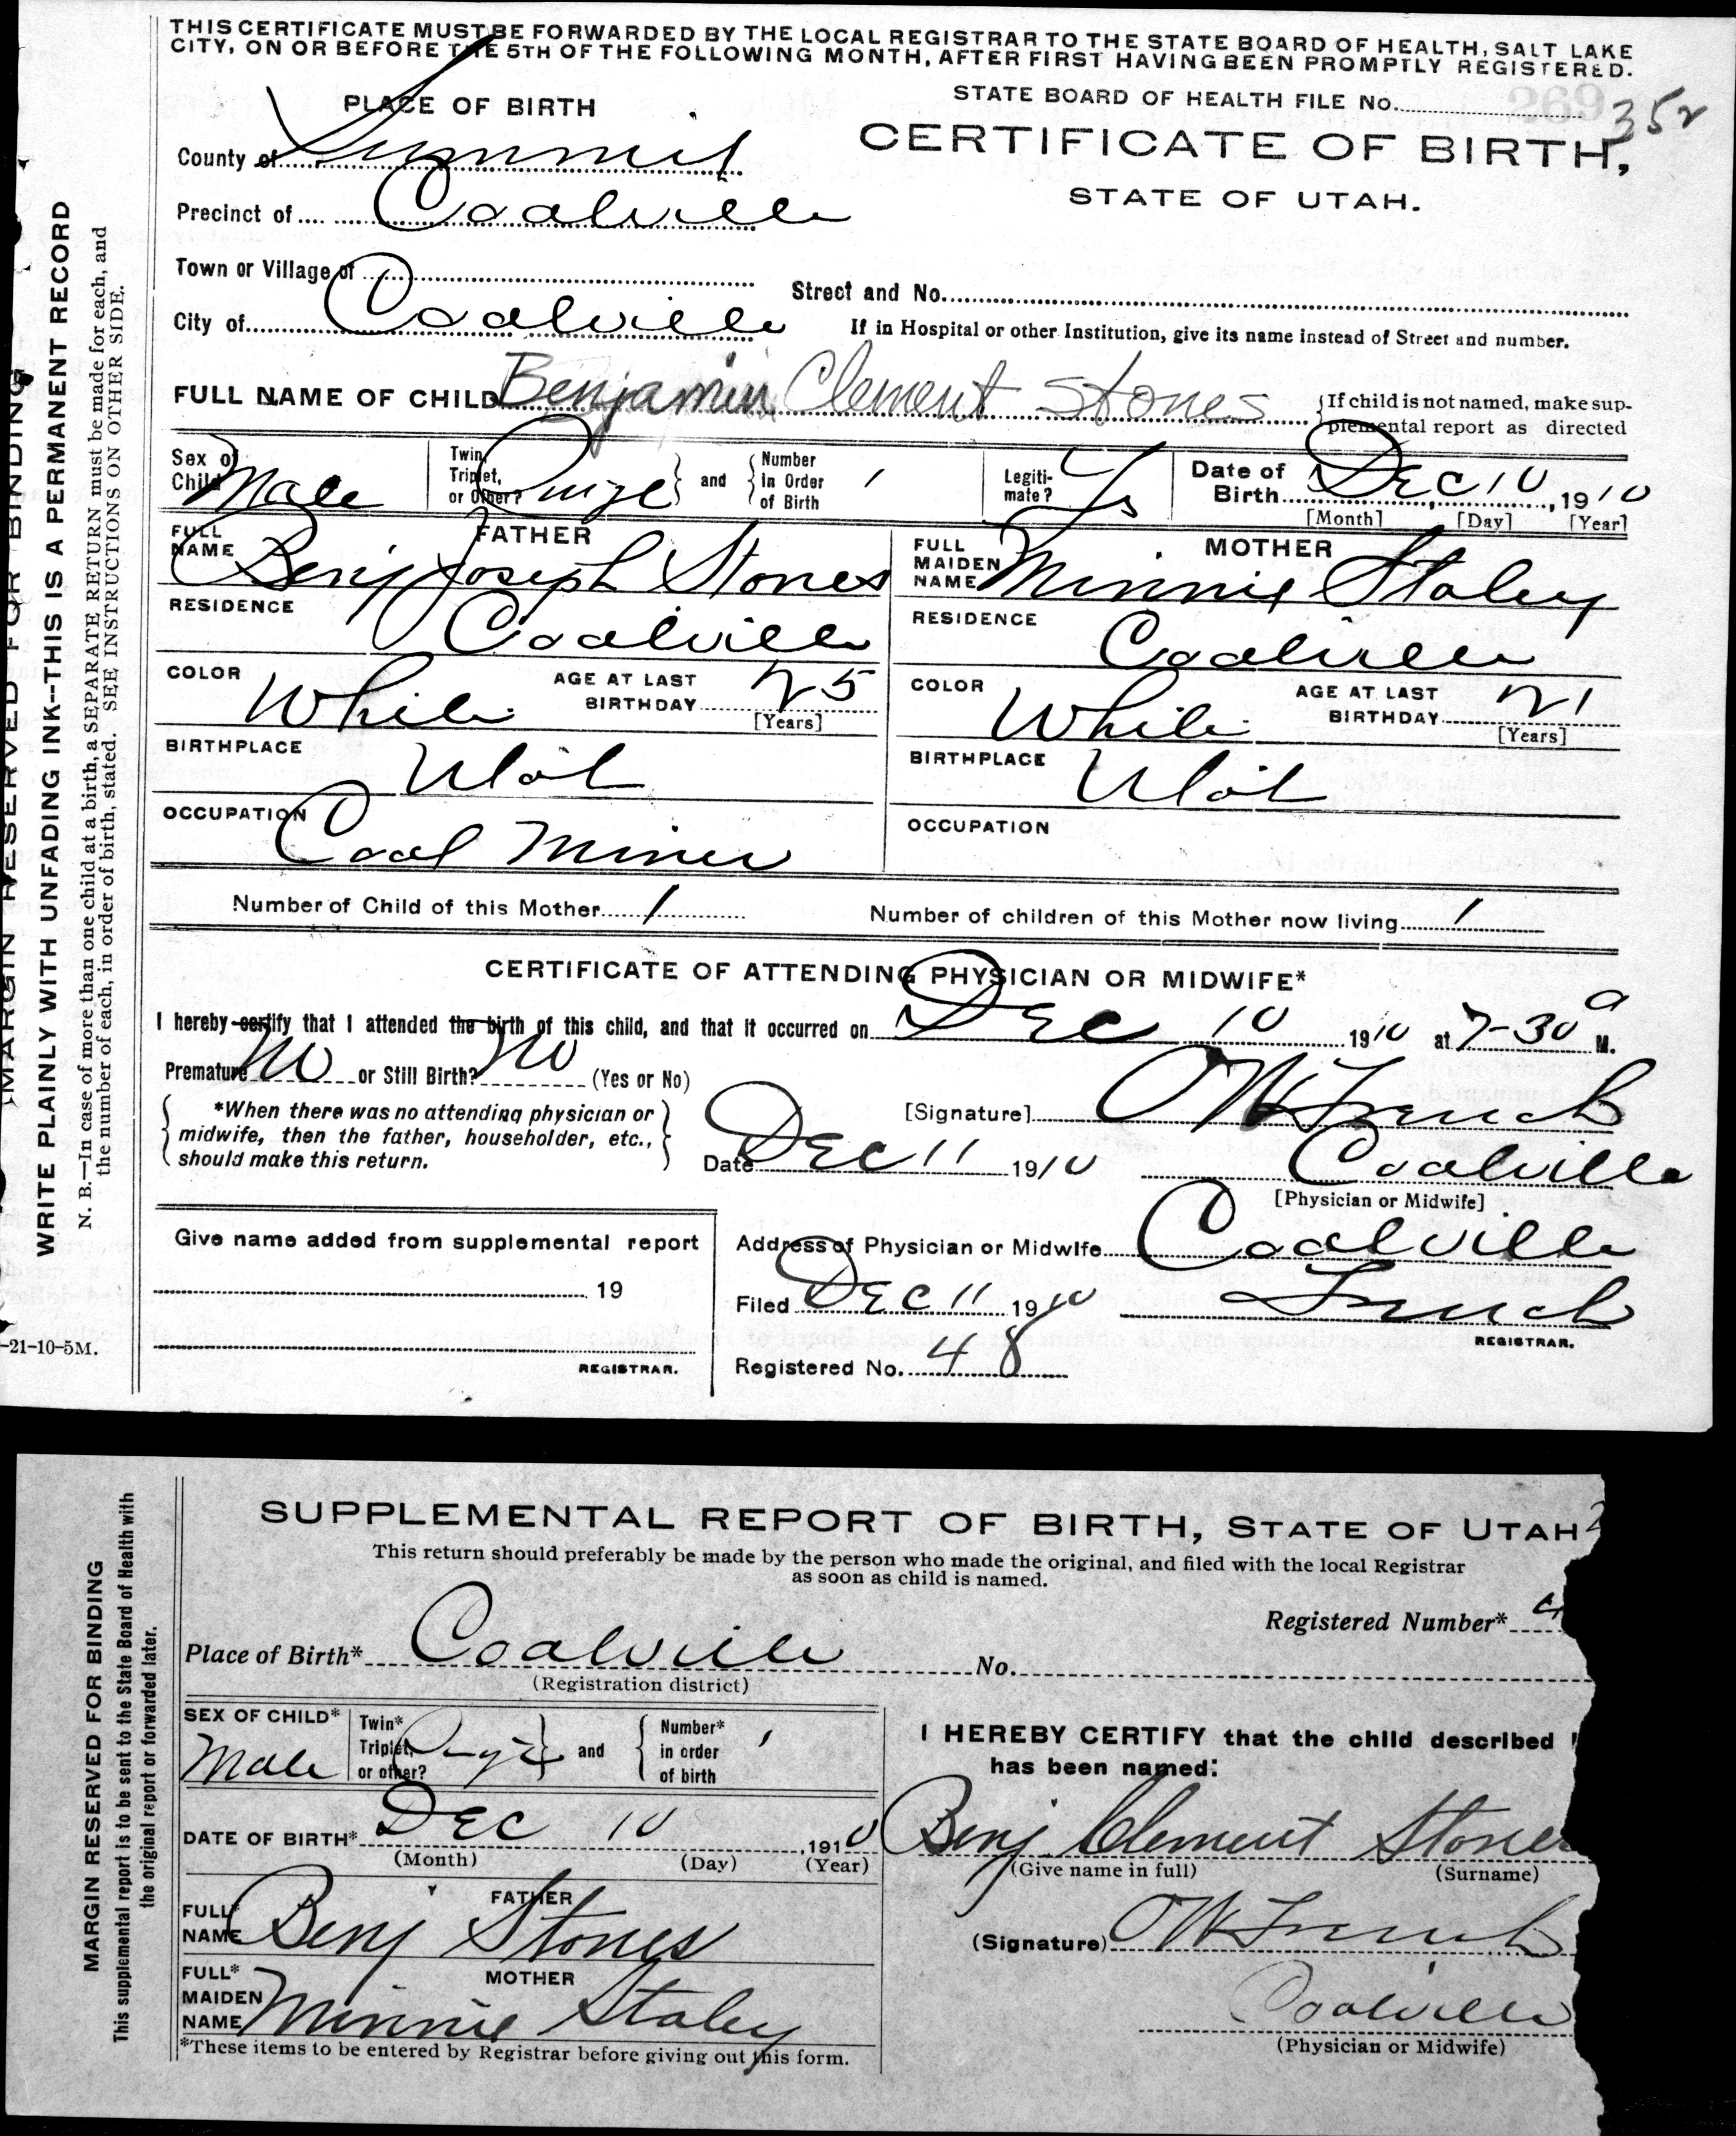 THIS CERTIFICATE MUST BE FORWARDED BY THE LOCAL REGISTRAR TO THE STATE BOARD OF HEALTH, SALT LAKE
CITY, ON OR BEFORE THE 5TH OF THE FOLLOWING MONTH, AFTER FIRST HAVING BEEN PROMPTLY REGISTERED.
STATE BOARD OF HEALTH FILE No. 269 352
PLACE OF BIRTH
CERTIFICATE OF BIRTH,
STATE OF UTAH.
County of Summit
Precinct of Coalville
Town or Village of
Street and No.
City of Coalville
If in Hospital or other Institution, give its name instead of Street and number.
FULL NAME OF CHILD Benjamin Clement Stones
{If child is not named, make sup-
plemental report as directed
Sex of Child Male
Twin, Triplet, or Other? and Number In Order of Birth 1
Legiti-mate? Ys
Date of Birth Dec 10, 1910
[Month] [Day] [Year]
FATHER
FULL NAME Benj Joseph Stones
RESIDENCE Coalville
COLOR White
AGE AT LAST BIRTHDAY 25
[Years]
BIRTHPLACE Utah
OCCUPATION Coal Miner
MOTHER
FULL MAIDEN NAME Minnie Staley
RESIDENCE Coalville
COLOR White
AGE AT LAST BIRTHDAY 21
[Years]
BIRTHPLACE Utah
OCCUPATION
Number of Child of this Mother 1
Number of children of this Mother now living 1
CERTIFICATE OF ATTENDING PHYSICIAN OR MIDWIFE*
I hereby certify that I attended the birth of this child, and that it occurred on Dec 10 1910 at 7-30 a M.
Premature No or Still Birth? No (Yes or No)
{*When there was no attending physician or
midwife, then the father, householder, etc.,
should make this return.}
[Signature] O W French
Date Dec 11 1910
Coalville
[Physician or Midwife]
Give name added from supplemental report
19
REGISTRAR.
Address of Physician or Midwife Coalville
Filed Dec 11 1910 French
REGISTRAR.
Registered No. 48
MARGIN RESERVED FOR BINDING
WRITE PLAINLY WITH UNFADING INK--THIS IS A PERMANENT RECORD
N. B.—In case of more than one child at a birth, a SEPARATE RETURN must be made for each, and
the number of each, in order of birth, stated. SEE INSTRUCTIONS ON OTHER SIDE.
-21-10-5M.
SUPPLEMENTAL REPORT OF BIRTH, STATE OF UTAH
This return should preferably be made by the person who made the original, and filed with the local Registrar
as soon as child is named.
Registered Number* 4
Place of Birth* Coalville No.
(Registration district)
SEX OF CHILD* Male
Twin* Triplet, or other? and Number* in order of birth 1
DATE OF BIRTH* Dec 10, 1910
(Month) (Day) (Year)
FATHER
FULL* NAME Benj Stones
MOTHER
FULL* MAIDEN NAME Minnie Staley
*These items to be entered by Registrar before giving out this form.
I HEREBY CERTIFY that the child described
has been named:
Benj Clement Stones
(Give name in full) (Surname)
(Signature) O W French
Coalville
(Physician or Midwife)
MARGIN RESERVED FOR BINDING
This supplemental report is to be sent to the State Board of Health with
the original report or forwarded later.